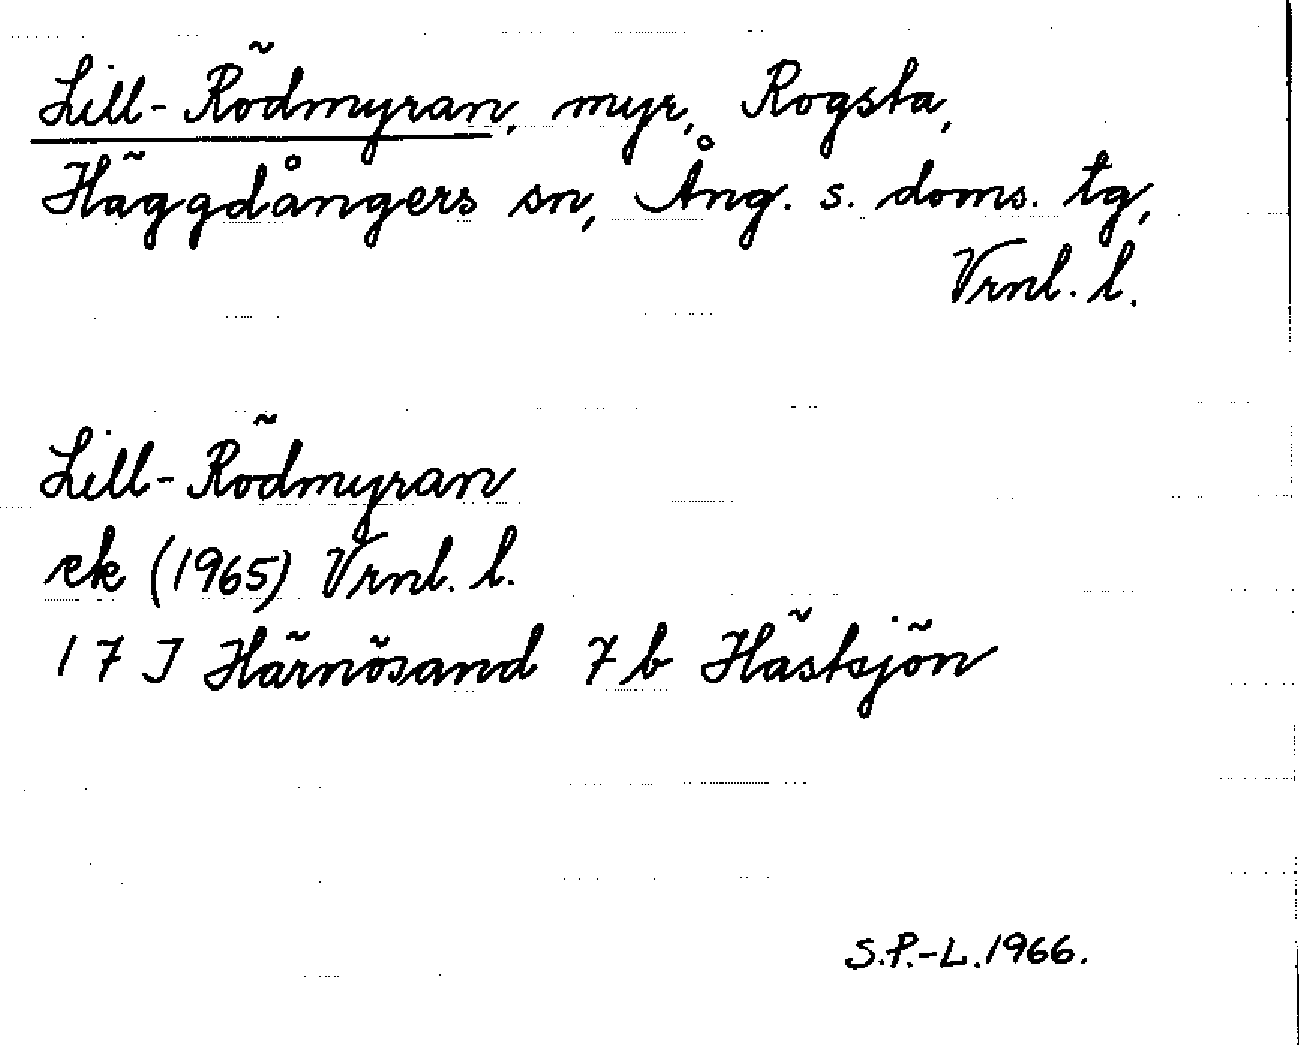 Lill-Rödmyran, myr, Rogsta,
Häggdångers sn, Ång. s. doms. tg,
Vrnl. l.
Lill-Rödmyran
ek (1965) Vrnl. l.
17 I Härnösand 7b Hästsjön
S.P.-L. 1966.